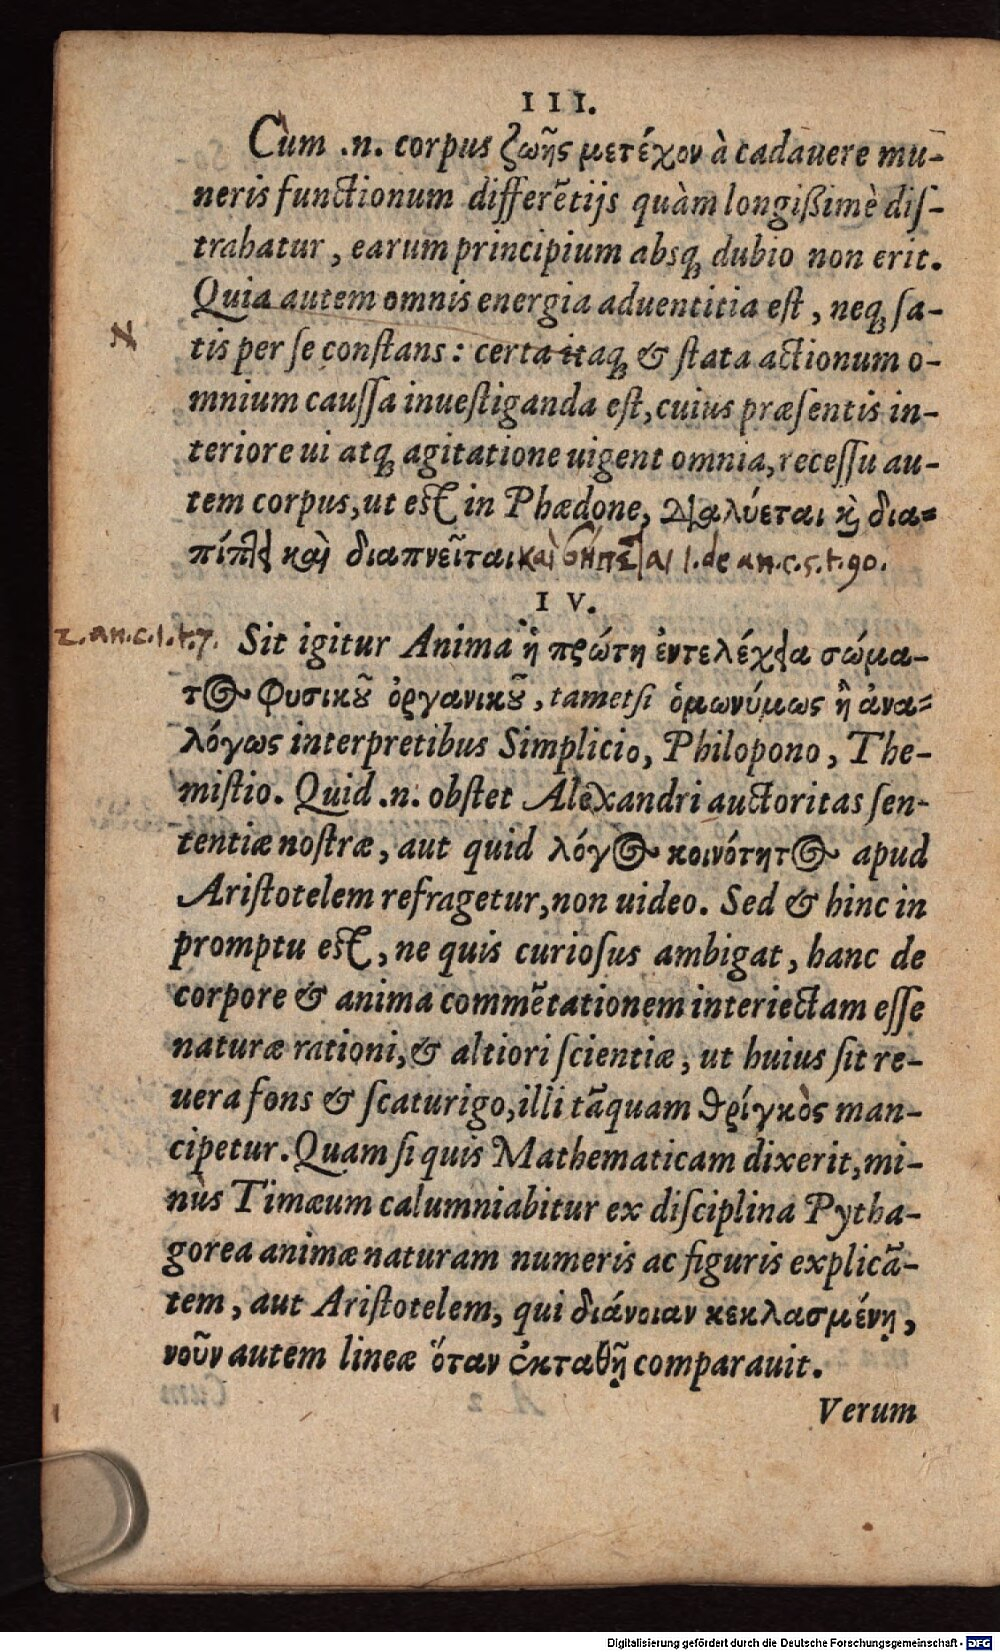 III.
Cùm .n. corpus ζωῆς μετέχον à cadauere mu-
neris functionum differẽtijs quàm longißimè diſ-
trahatur, earum principium absq́ dubio non erit.
Quia autem omnis energia aduentitia eſt, neq́ ſa-
N
tis per ſe conſtans: certa itaq́ & ſtata actionum o-
mnium cauſſa inueſtiganda eſt, cuius præſentis in-
teriore ui atq́ agitatione uigent omnia, receſſu au-
tem corpus, ut est in Phædone, διαλύεται καὶ δια-
πίπτει καὶ διαπνεῖται καὶ σήπεται 1. de an. c. 5. t. 90.
IV.
2. an. c. 1. t. 7. Sit igitur Anima ἡ πρώτη ἐντελέχεια σώμα-
τος φυσικοῦ ὀργανικοῦ, tametſi ὁμωνύμως ἢ ἀνα-
λόγως interpretibus Simplicio, Philopono, The-
miſtio. Quid .n. obſtet Alexandri auctoritas ſen-
tentiæ noſtræ, aut quid λόγος κοινότητος apud
Ariſtotelem refragetur, non uideo. Sed & hinc in
promptu est, ne quis curioſus ambigat, hanc de
corpore & anima commẽtationem interiectam eſſe
naturæ rationi, & altiori ſcientiæ, ut huius ſit re-
uera fons & ſcaturigo, illi tãquam θρίγκὸς man-
cipetur. Quam ſi quis Mathematicam dixerit, mi-
nùs Timæum calumniabitur ex diſciplina Pytha-
gorea animæ naturam numeris ac figuris explicã-
tem, aut Ariſtotelem, qui διάνοιαν κεκλασμένῃ,
νοῦν autem lineæ ὅταν ἐκταθῇ comparauit.
Verum
Digitalisierung gefördert durch die Deutsche Forschungsgemeinschaft - DFG